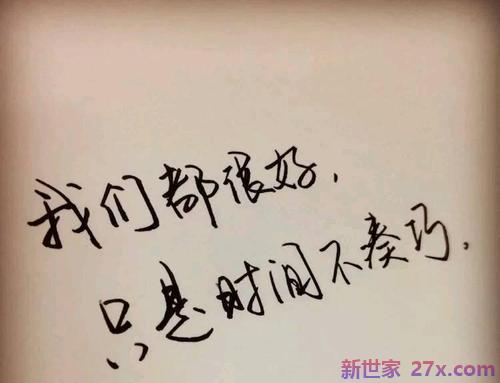 我们都很好，
只是时间不凑巧，
新世家 27x.com